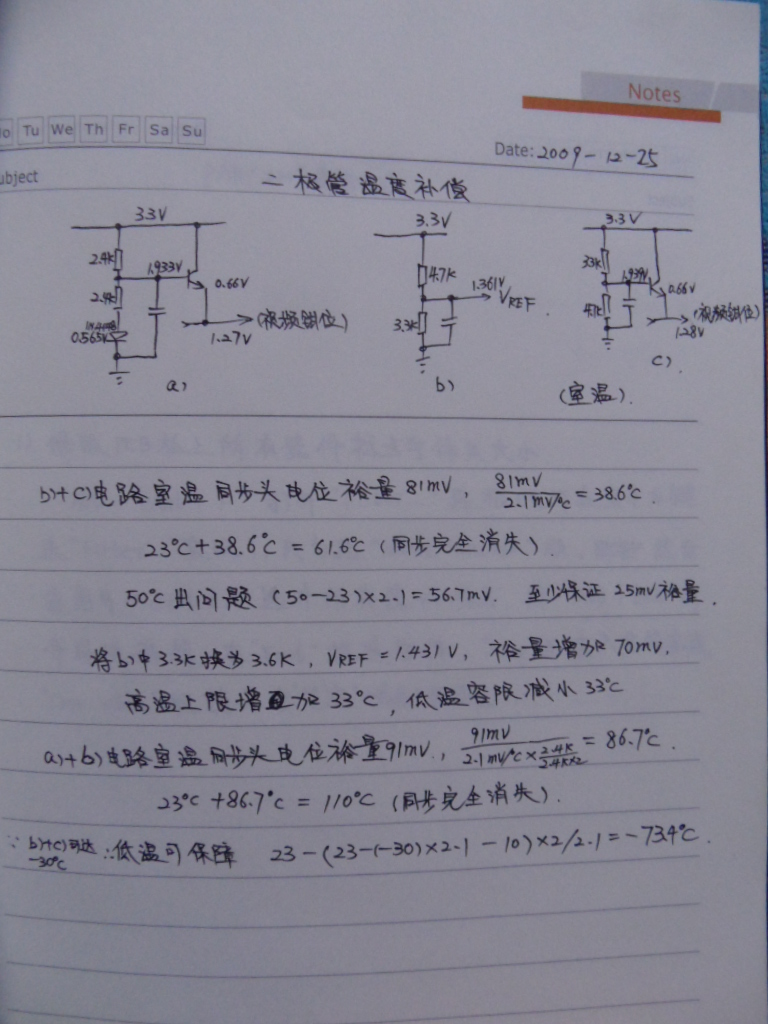 Notes
Tu We Th Fr Sa Su
Date: 2009-12-25
ubject
二极管温度补偿
3.3V
2.4K
1.933V
0.66V
2.4K
1N4148
0.565V
1.27V
(视频钳位)
a)
3.3V
4.7K
1.361V
VREF
3.3K
b)
3.3V
33K
1.939V
0.66V
47K
1.28V
(视频钳位)
c)
(室温)
b)+c)电路室温同步头电位裕量81mV, 81mV/2.1mV/°C = 38.6°C.
23°C+38.6°C = 61.6°C (同步完全消失)
50°C出问题 (50-23)×2.1=56.7mV. 至少保证25mV裕量.
将b)中3.3K换为3.6K, VREF=1.431V, 裕量增加70mV.
高温上限增加33°C, 低温容限减小33°C
a)+b)电路室温同步头电位裕量91mV, 91mV/2.1mV/°C×2.4K/2.4K×2 = 86.7°C.
23°C+86.7°C = 110°C (同步完全消失).
∵ b)+c)可达-30°C ∴低温可保障 23-(23-(-30)×2.1-10)×2/2.1=-73.4°C.